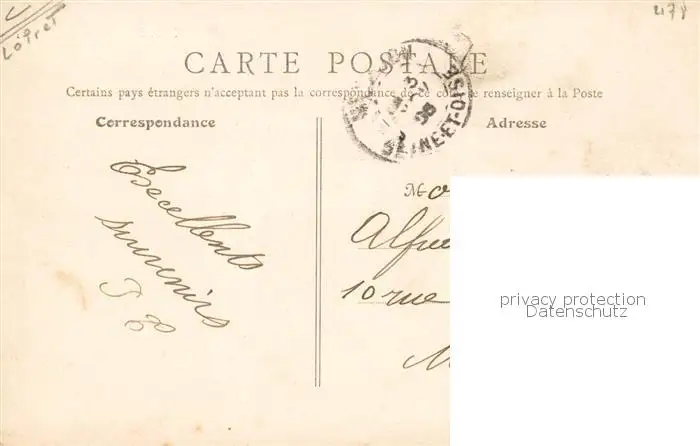 Loiret
4178
CARTE POSTALE
Certains pays étrangers n'acceptant pas la correspondance de ce côté, se renseigner à la Poste
SEINE-ET-OISE
Correspondance
Adresse
Excellents
souvenirs
10 rue
privacy protection
Datenschutz